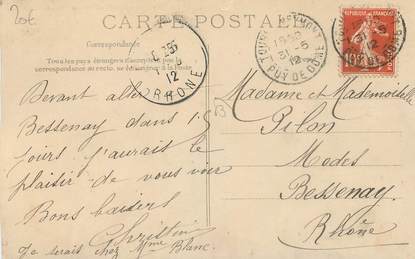 20€
CARTE POSTALE
Correspondance
Tous les pays étrangers n'acceptent pas de
correspondance au recto, se renseigner à la Poste
RHONE
12
31 -5
12
PUY DE DOME
10
Devant aller
Bessenay dans 15
jours j'aurais le
plaisir de vous voir
Bons baisers
Christine
Je serais chez Mme Blanc.
Madame et Mademoiselle
Pilon
Modes
Bessenay
Rhône